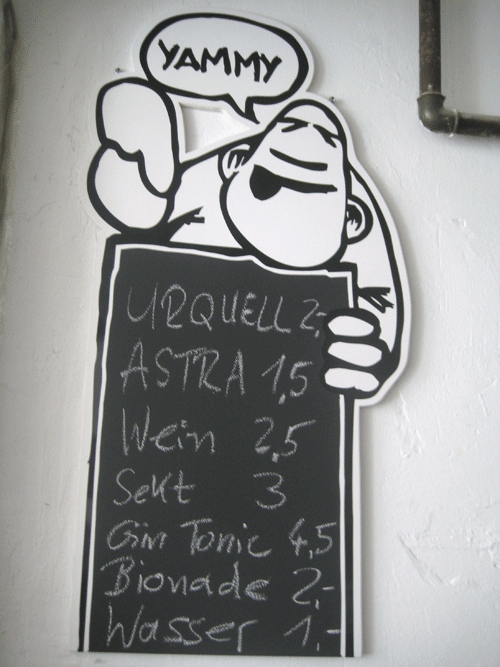 YAMMY
URQUELL 2,-
ASTRA 1,5
Wein 2,5
Sekt 3
Gin Tonic 4,5
Bionade 2,-
Wasser 1,-